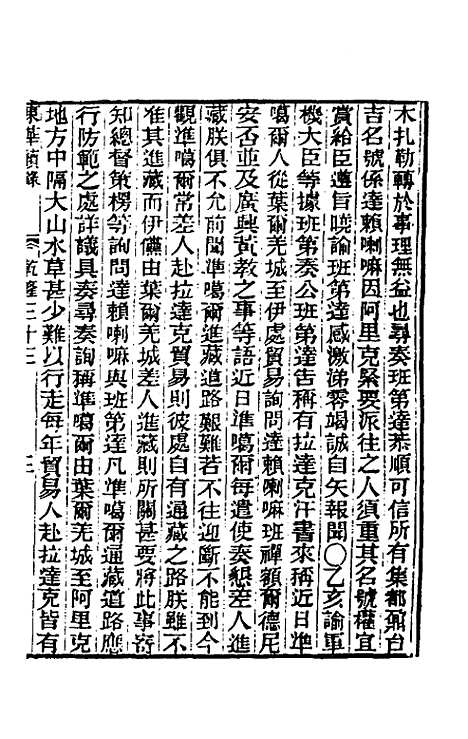 木扎勒轉於事理無益也尋奏班第達恭順可信所有集都鼐台
吉名號係達賴喇嘛因阿里克緊要派往之人須重其名號權宜
賞給臣遵旨曉諭班第達感激涕零竭誠自矢報聞○乙亥諭軍
機大臣等據班第奏公班第達告稱有拉達克汗書來稱近日準
噶爾人從葉爾羌城至伊處貿易詢問達賴喇嘛班禪額爾德尼
安否並及廣興黃教之事等語近日準噶爾每遣使奏懇差人進
藏朕俱不允前聞準噶爾進藏道路艱難若不往迎斷不能到今
觀準噶爾常差人赴拉達克貿易則彼處自有通藏之路朕雖不
准其進藏而伊儻由葉爾羌城差人進藏則所關甚要將此事寄
知總督策楞等詢問達賴喇嘛與班第達凡準噶爾通藏道路應
行防範之處詳議具奏尋奏詢稱準噶爾由葉爾羌城至阿里克
地方中隔大山水草甚少難以行走每年貿易人赴拉達克皆有
東華續錄 乾隆三十三 三